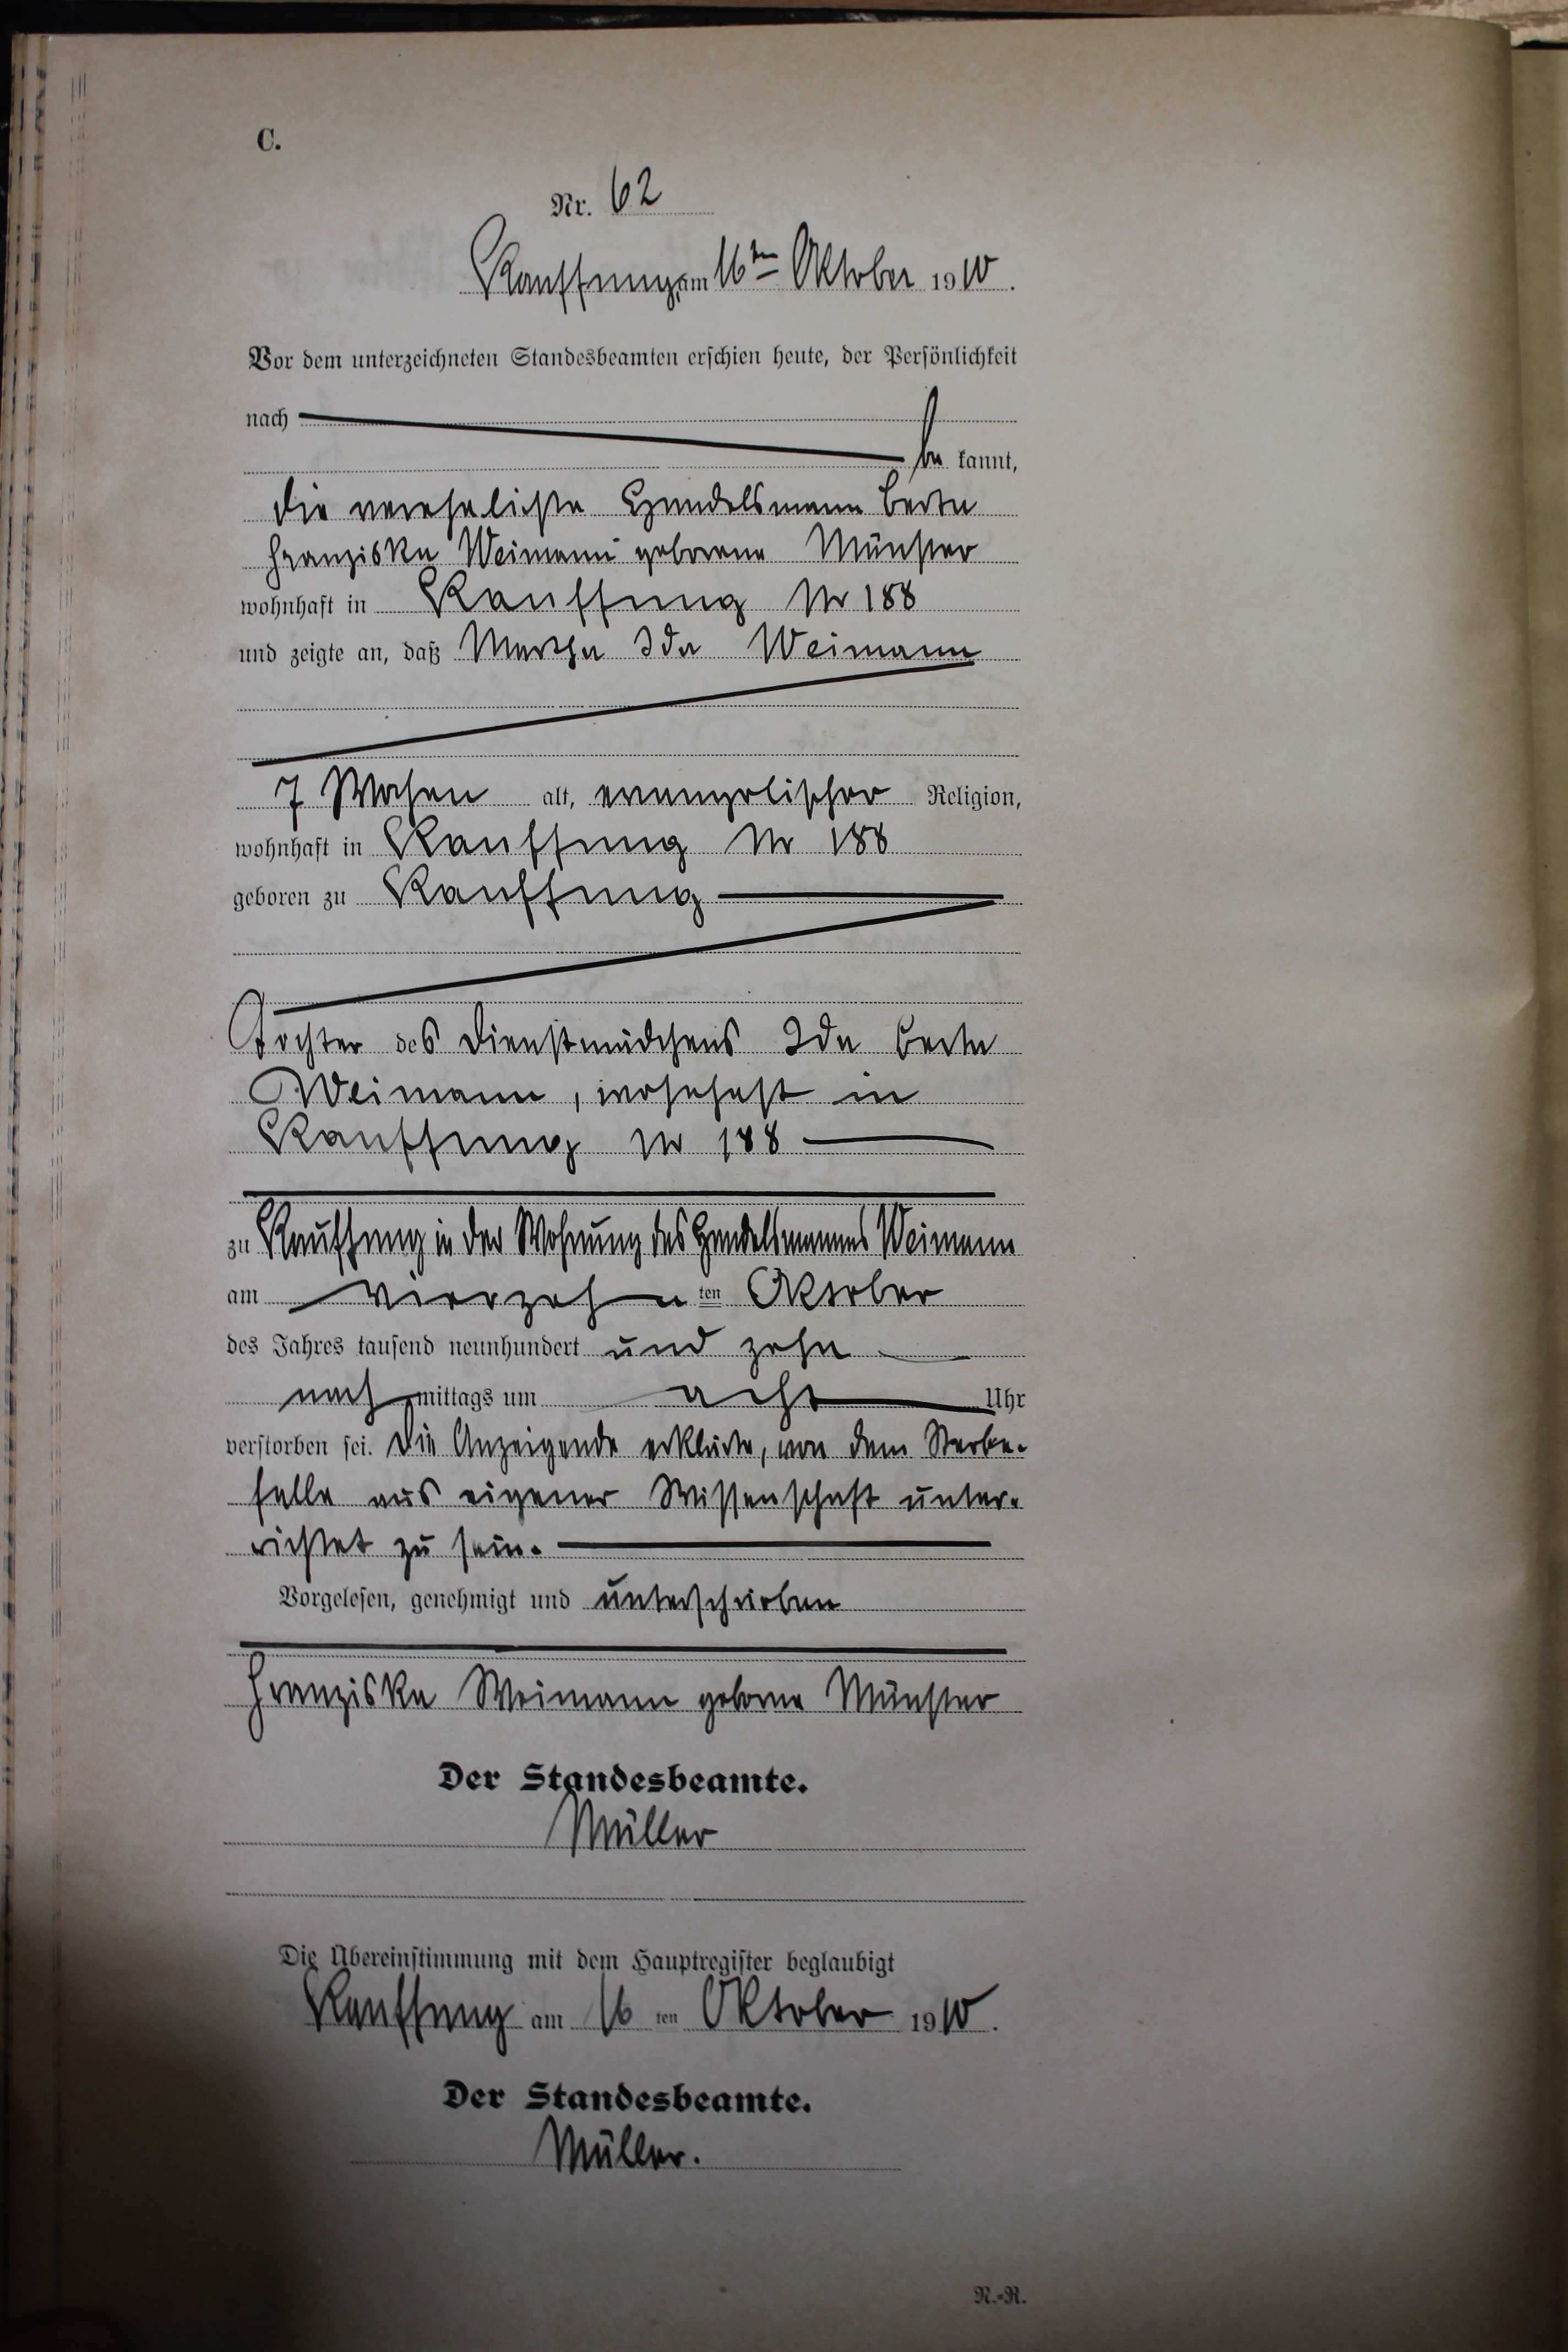 C.
Nr. 62
Kauffung, am 16ten Oktober 1910.
Vor dem unterzeichneten Standesbeamten erschien heute, der Persönlichkeit
nach
be kannt,
die verehelichte Handelsmann Berta
Franziska Weimann geborene Münster
wohnhaft in Kauffung Nr 188
und zeigte an, daß Martha Ida Weimann
7 Wochen alt, evangelischer Religion,
wohnhaft in Kauffung Nr 188
geboren zu Kauffung
Tochter des Dienstmädchens Ida Berta
Weimann, wohnhaft in
Kauffung Nr 188
zu Kauffung in der Wohnung des Handelsmannes Weimann
am vierzehn ten Oktober
des Jahres tausend neunhundert und zehn
nach mittags um acht Uhr
verstorben sei. Die Anzeigende erklärte, von dem Sterbe-
falle aus eigener Wissenschaft unter-
richtet zu sein.
Vorgelesen, genehmigt und unterschrieben
Franziska Weimann geborne Münster
Der Standesbeamte.
Müller
Die Übereinstimmung mit dem Hauptregister beglaubigt
Kauffung am 16 ten Oktober 1910.
Der Standesbeamte.
Müller.
R.-R.